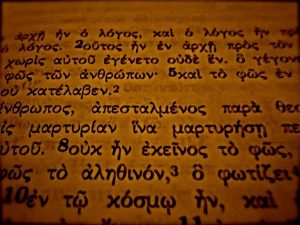 ἀρχῇ ἦν ὁ λόγος, καὶ ὁ λόγος ἦν
ὁ λόγος. 2οὗτος ἦν ἐν ἀρχῇ πρὸς τὸν
χωρὶς αὐτοῦ ἐγένετο οὐδὲ ἕν. ὃ γέγον
φῶς τῶν ἀνθρώπων· 5καὶ τὸ φῶς ἐν
οὐ κατέλαβεν.2
ἄνθρωπος, ἀπεσταλμένος παρὰ θε
ἰς μαρτυρίαν ἵνα μαρτυρήσῃ πε
αὐτοῦ. 8οὐκ ἦν ἐκεῖνος τὸ φῶς,
φῶς τὸ ἀληθινόν,3 ὃ φωτίζει
10ἐν τῷ κόσμῳ ἦν, καὶ